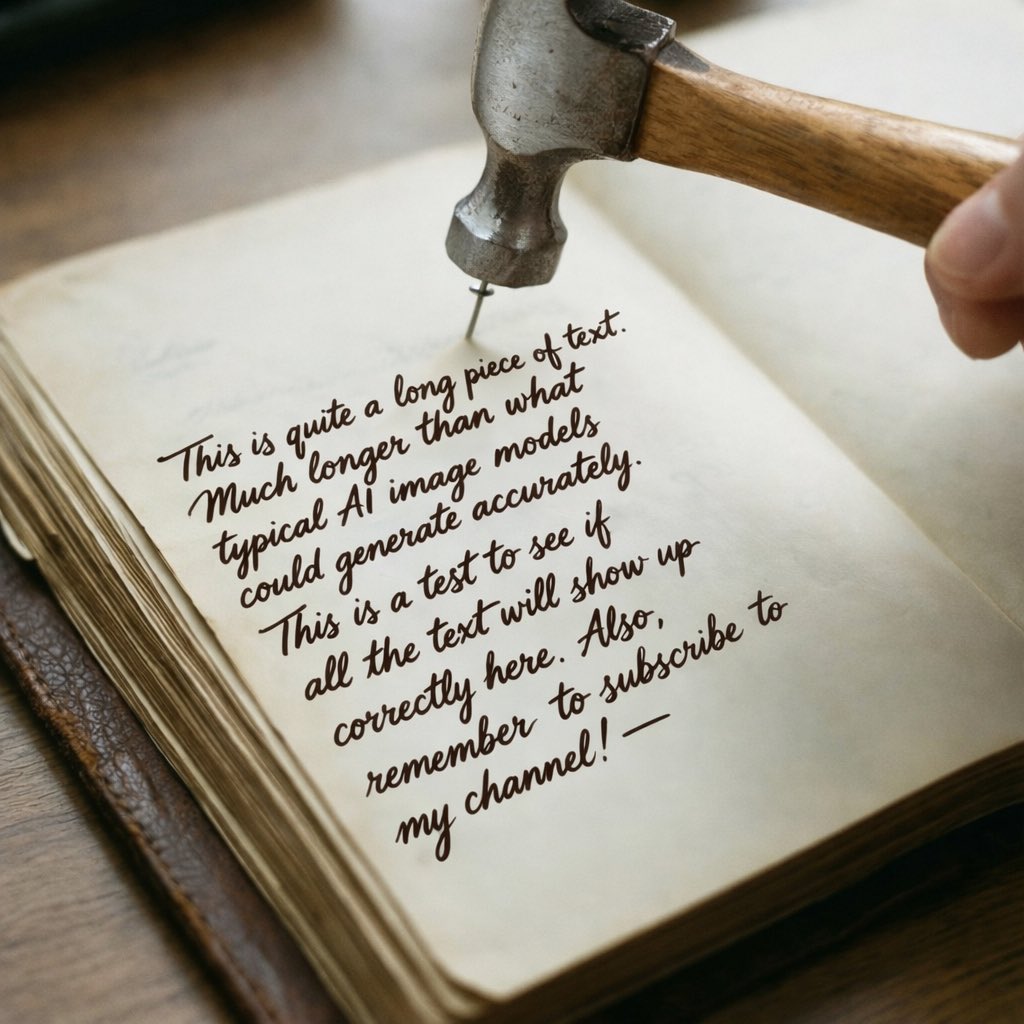 This is quite a long piece of text.
Much longer than what
typical AI image models
could generate accurately.
This is a test to see if
all the text will show up
correctly here. Also,
remember to subscribe to
my channel! —